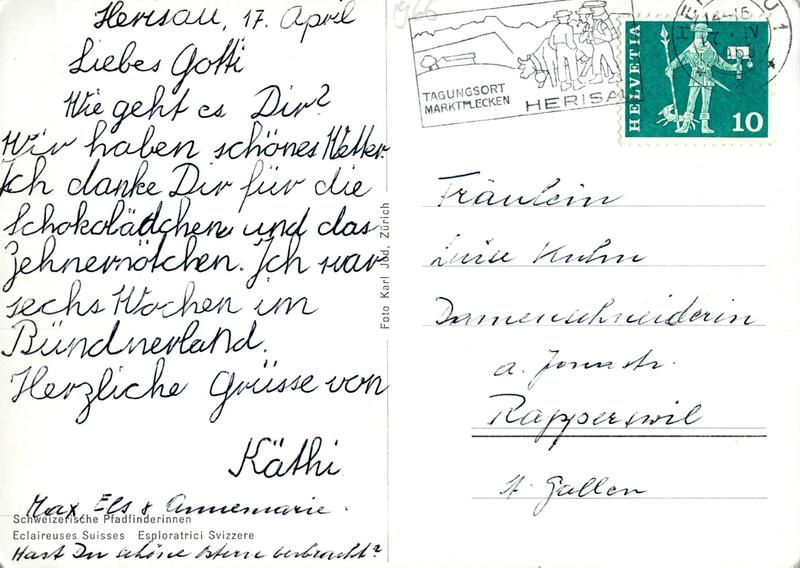 Herisau, 17. April
Liebes Gotti
Wie geht es Dir?
Wir haben schönes Wetter.
Ich danke Dir für die
Schokolädchen und das
Zehnernötchen. Ich war
sechs Wochen im
Bündnerland.
Herzliche Grüsse von
Käthi
Max Els & Annemarie.
Schweizerische Pfadfinderinnen
Eclaireuses Suisses Esploratrici Svizzere
Hast Du schöne Ostern verbracht?
Foto Karl Jud, Zürich
1966
TAGUNGSORT
MARKTFLECKEN
HERISAU
HELVETIA
10
Fräulein
Luise Kuhn
Damenschneiderin
a. Jonastr.
Rapperswil
St. Gallen